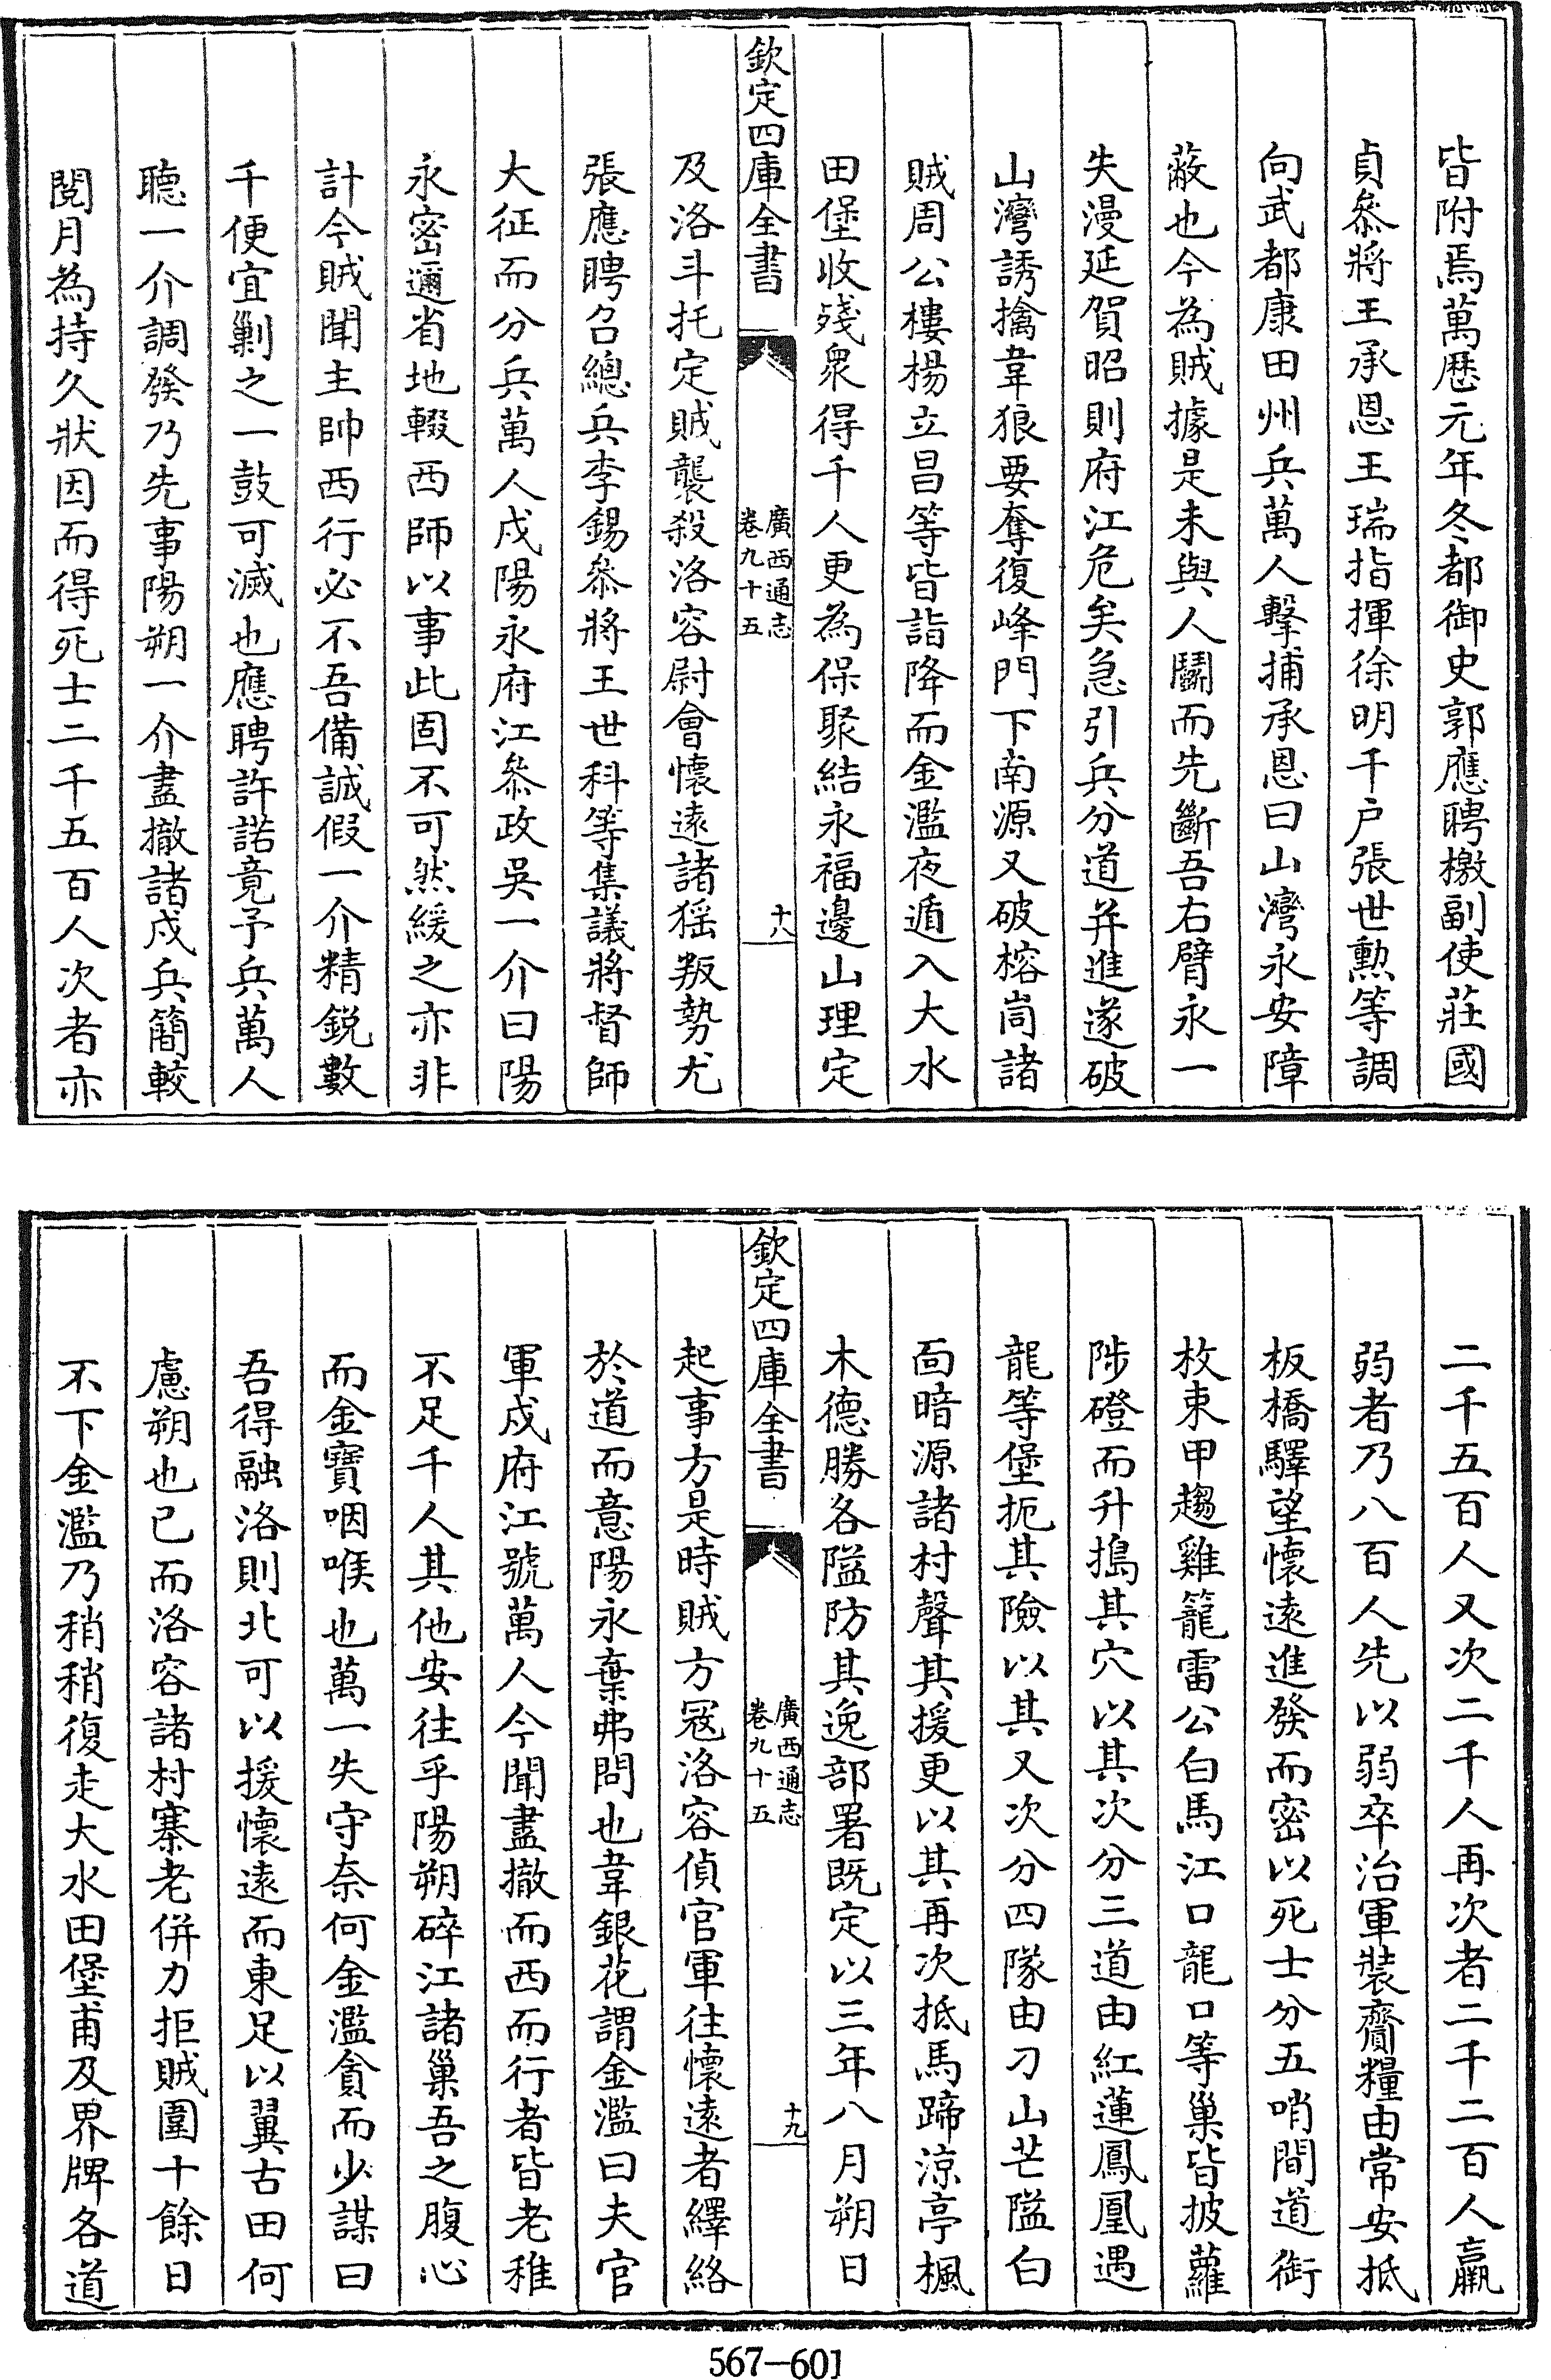 皆附焉萬歷元年冬都御史郭應聘檄副使莊國
貞叅將王承恩王瑞指揮徐明千户張世勲等調
向武都康田州兵萬人擊捕承恩曰山灣永安障
蔽也今為賊據是未與人鬭而先斷吾右臂永一
失漫延賀昭則府江危矣急引兵分道并進遂破
山灣誘擒韋狼要奪復峰門下南源又破榕峝諸
賊周公樓楊立昌等皆詣降而金濫夜遁入大水
田堡收殘衆得千人更為保聚結永福邊山理定
欽定四庫全書
廣西通志
卷九十五
十八
及洛斗托定賊襲殺洛容尉會懷遠諸猺叛勢尤
張應聘召總兵李錫叅將王世科等集議將督師
大征而分兵萬人戍陽永府江叅政吳一介曰陽
永密邇省地輟西師以事此固不可然緩之亦非
計今賊聞主帥西行必不吾備誠假一介精鋭數
千便宜剿之一鼓可滅也應聘許諾竟予兵萬人
聽一介調發乃先事陽朔一介盡撤諸戍兵簡較
閱月為持久狀因而得死士二千五百人次者亦
二千五百人又次二千人再次者二千二百人羸
弱者乃八百人先以弱卒治軍裝齎糧由常安抵
板橋驛望懷遠進發而密以死士分五哨間道銜
枚束甲趨雞籠雷公白馬江口龍口等巢皆披蘿
陟磴而升搗其穴以其次分三道由紅蓮鳳凰遇
龍等堡扼其險以其又次分四隊由刀山芒隘白
面暗源諸村聲其援更以其再次抵馬蹄涼亭楓
木德勝各隘防其逸部署既定以三年八月朔日
欽定四庫全書
廣西通志
卷九十五
十九
起事方是時賊方冦洛容偵官軍往懷遠者繹絡
於道而意陽永棄弗問也韋銀花謂金濫曰夫官
軍戍府江號萬人今聞盡撤而西而行者皆老稚
不足千人其他安往乎陽朔碎江諸巢吾之腹心
而金寶咽喉也萬一失守奈何金濫貪而少謀曰
吾得融洛則北可以援懷遠而東足以翼古田何
慮朔也已而洛容諸村寨老併力拒賊圍十餘日
不下金濫乃稍稍復走大水田堡甫及界牌各道
567—601